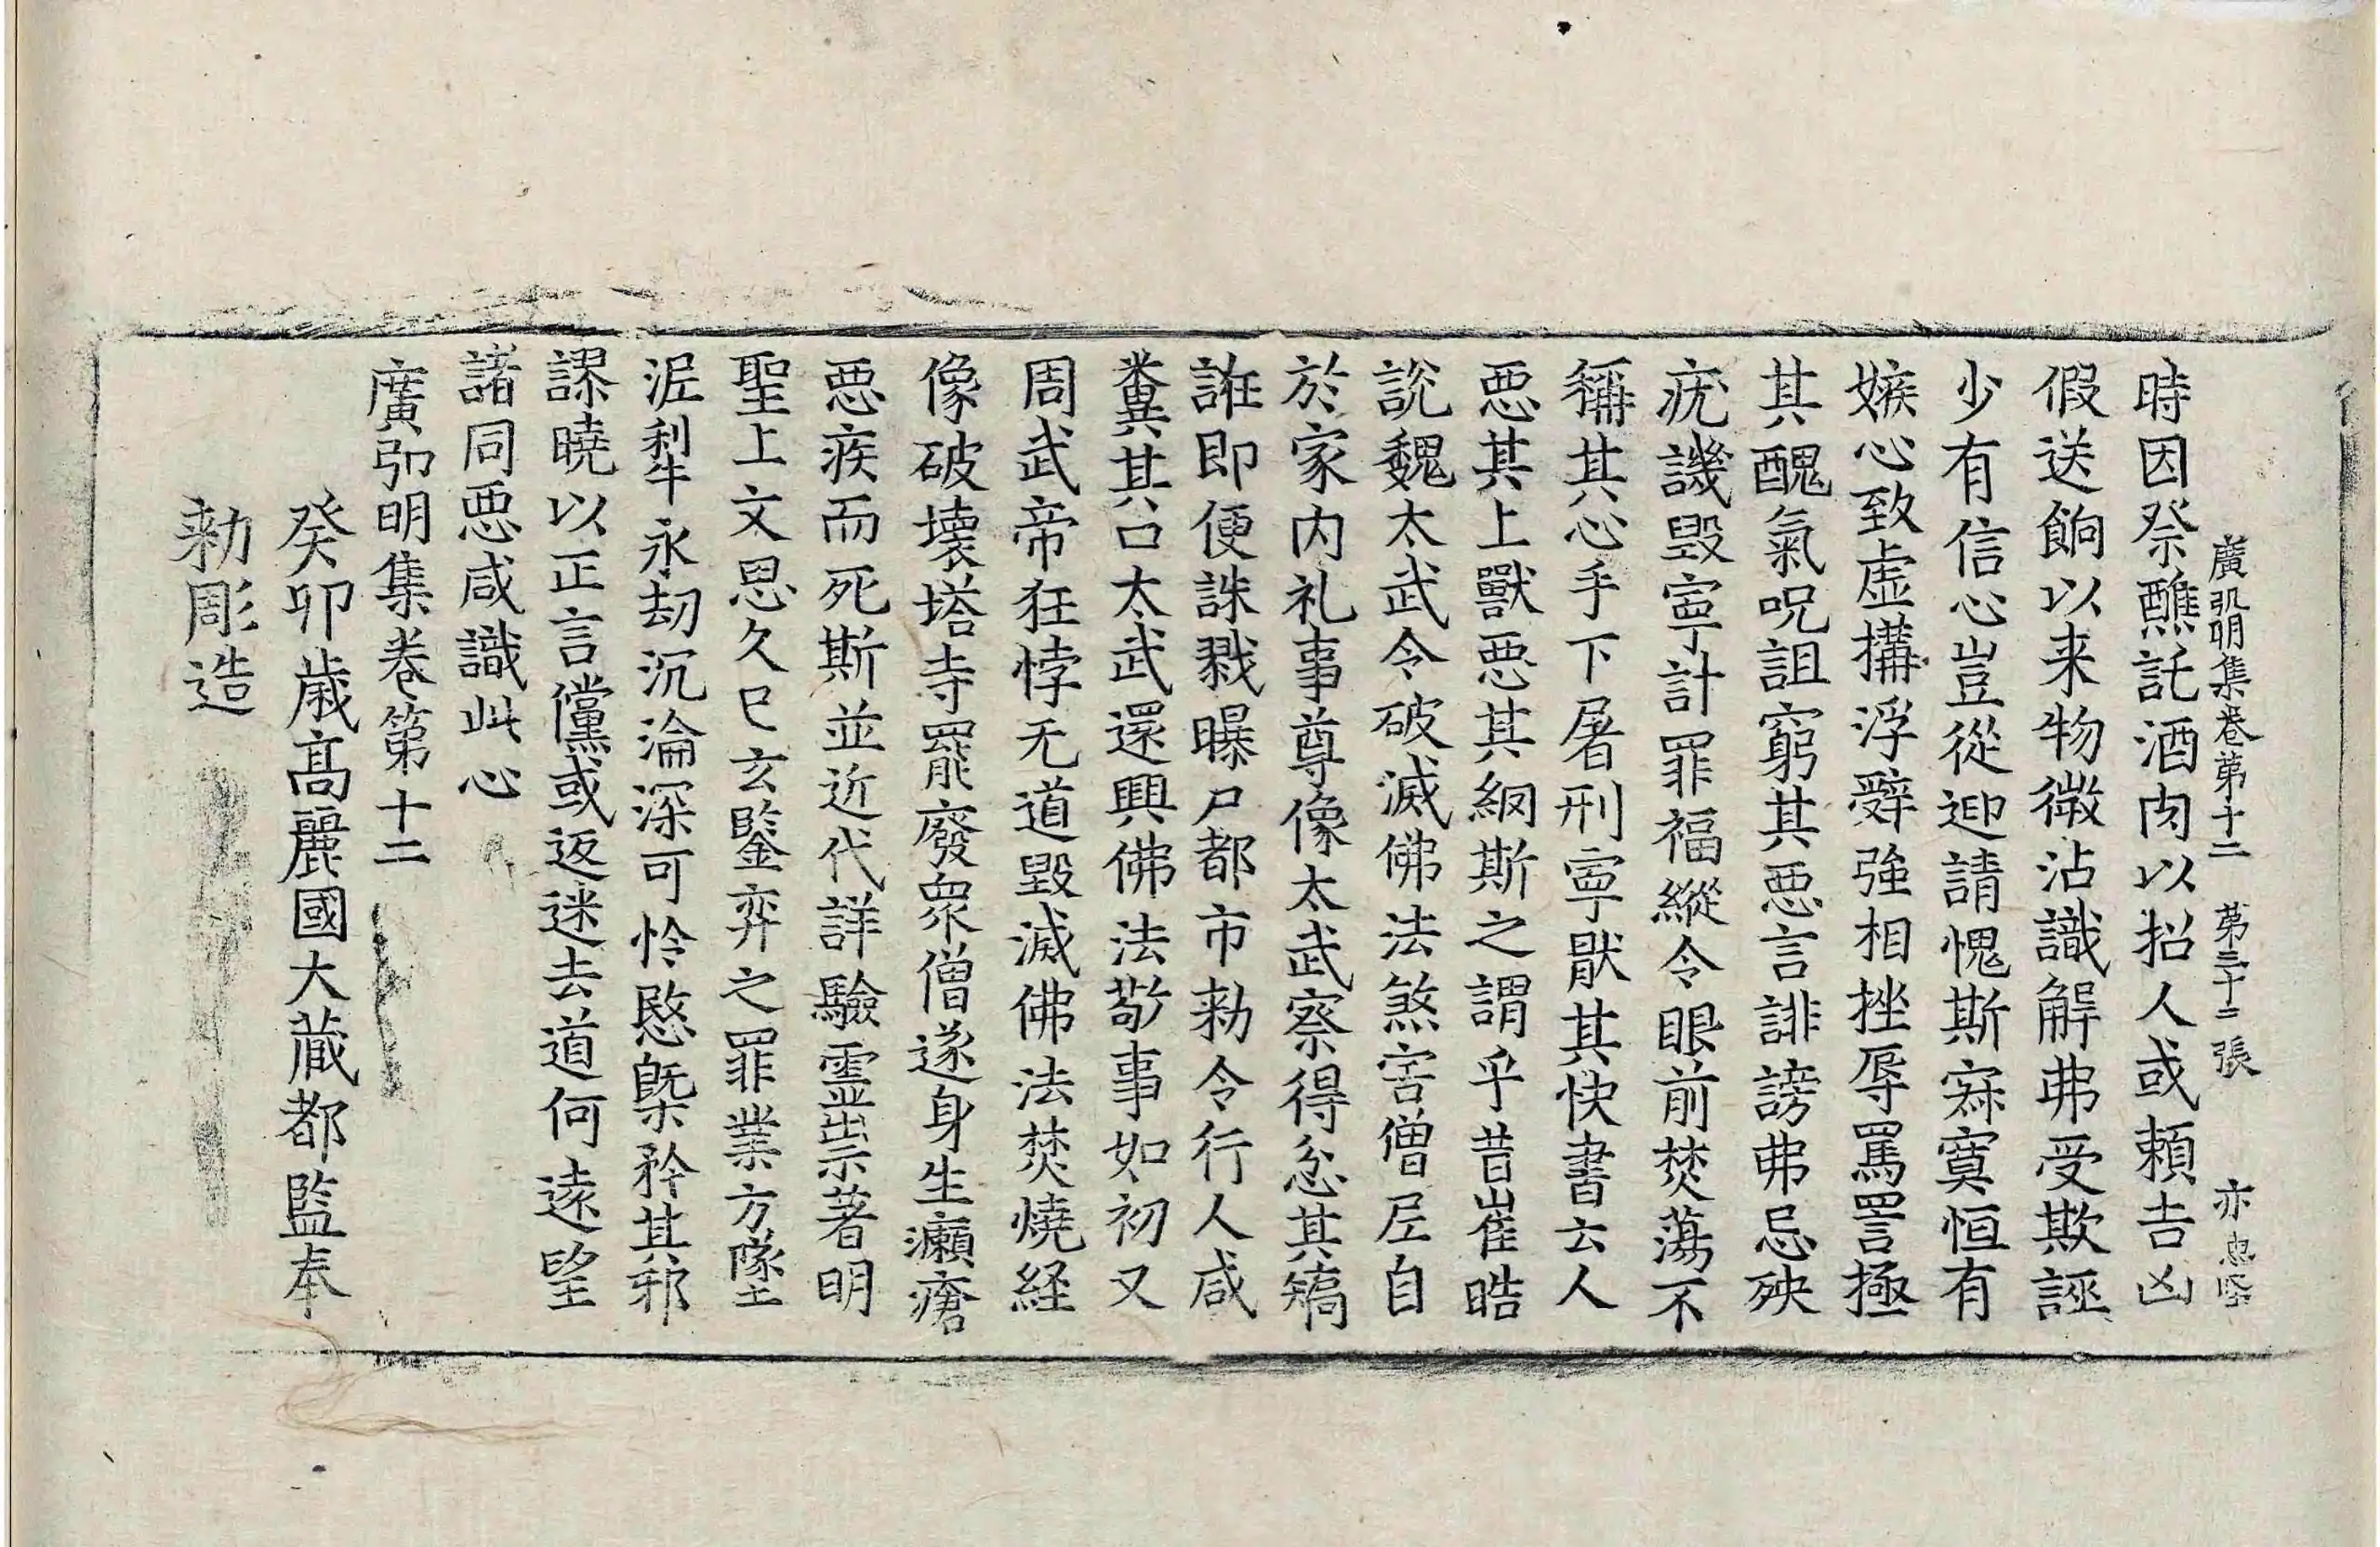 廣弘明集卷第十二 第三十二張 亦
時因祭醮託酒肉以招人或賴吉凶
假送餉以来物微沾識解弗受欺誣
少有信心豈從迎請愧斯寂寞恒有
嫉心致虛搆浮辭強相挫辱罵詈極
其醜氣呪詛窮其惡言誹謗弗忌殃
疣譏毀寧計罪福縱令眼前焚蕩不
稱其心手下屠刑寧猒其快書云人
惡其上獸惡其網斯之謂乎昔崔晧
說魏太武令破滅佛法煞害僧尼自
於家内礼事尊像太武察得忿其矯
誑即便誅戮曝尸都市勑令行人咸
糞其口太武還興佛法敬事如初又
周武帝狂悖无道毀滅佛法焚燒経
像破壞塔寺罷廢衆僧遂身生癩瘡
惡疾而死斯並近代詳驗靈祟著明
聖上文思久已玄鑒弃之罪業方墜
泥犁永劫沉淪深可怜愍旣矜其邪
謬曉以正言儻或返迷去道何遠望
諸同惡咸識此心
廣弘明集卷第十二
癸卯歲髙麗國大藏都監奉
勑彫造